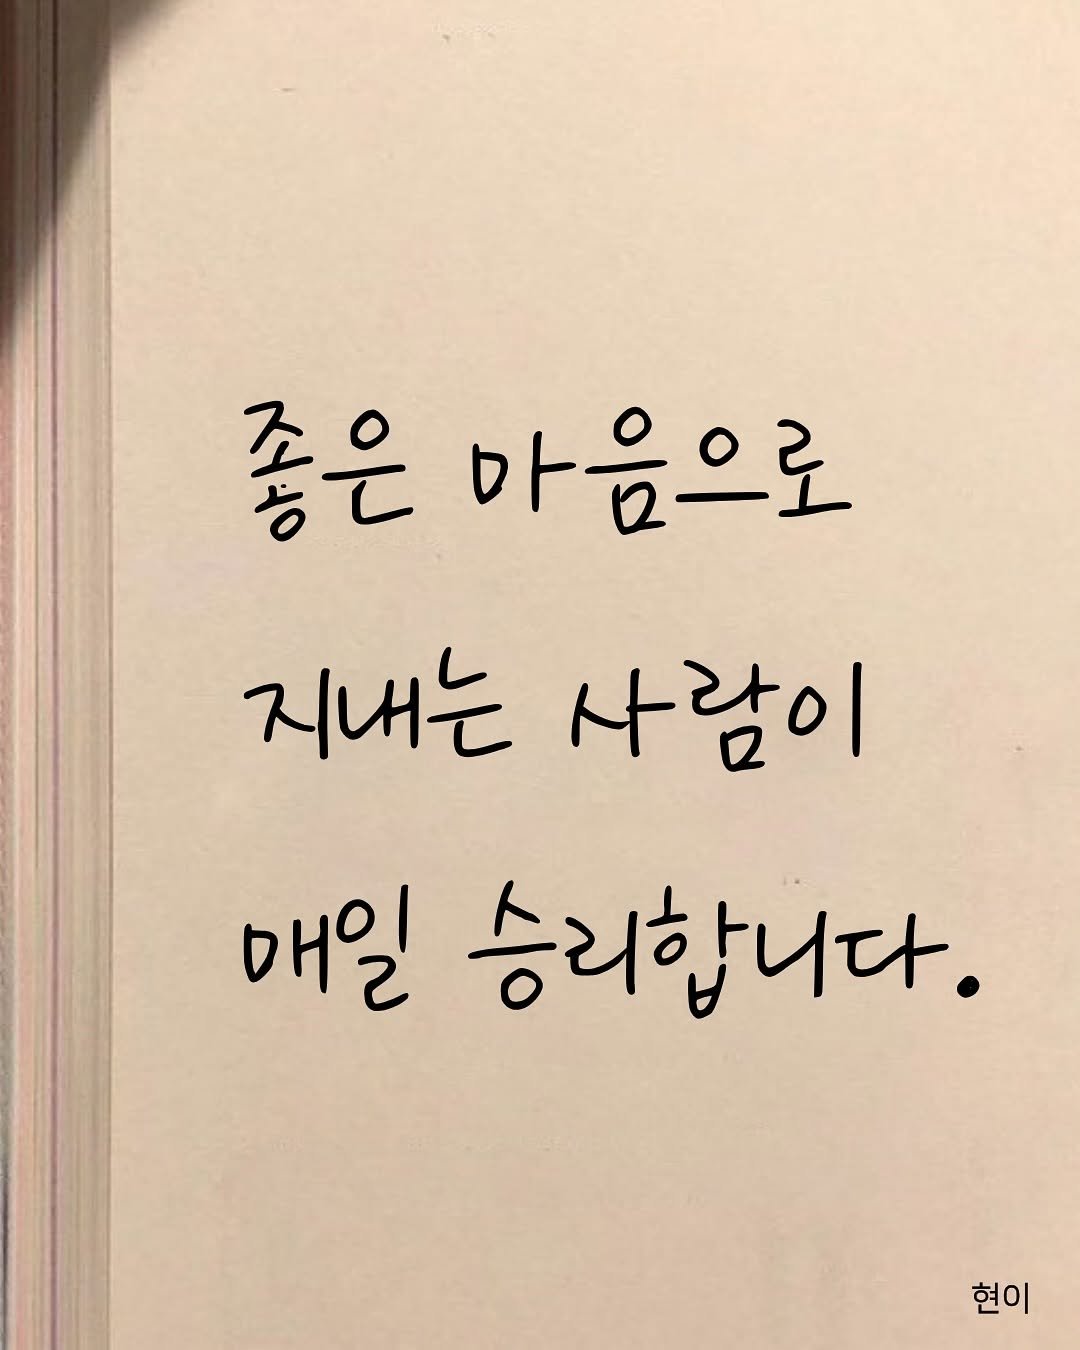 좋은 마음으로
지내는 사람이
매일 승리합니다.
현이